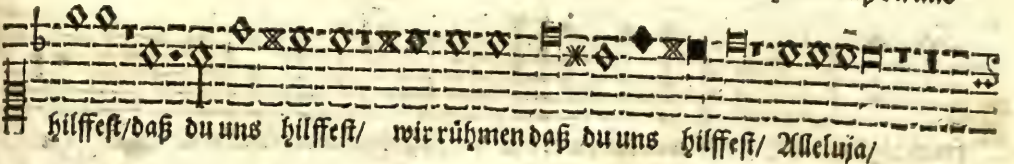 hilffest/daß du uns hilffest/ wir rühmen daß du uns hilffest/ Alleluja/